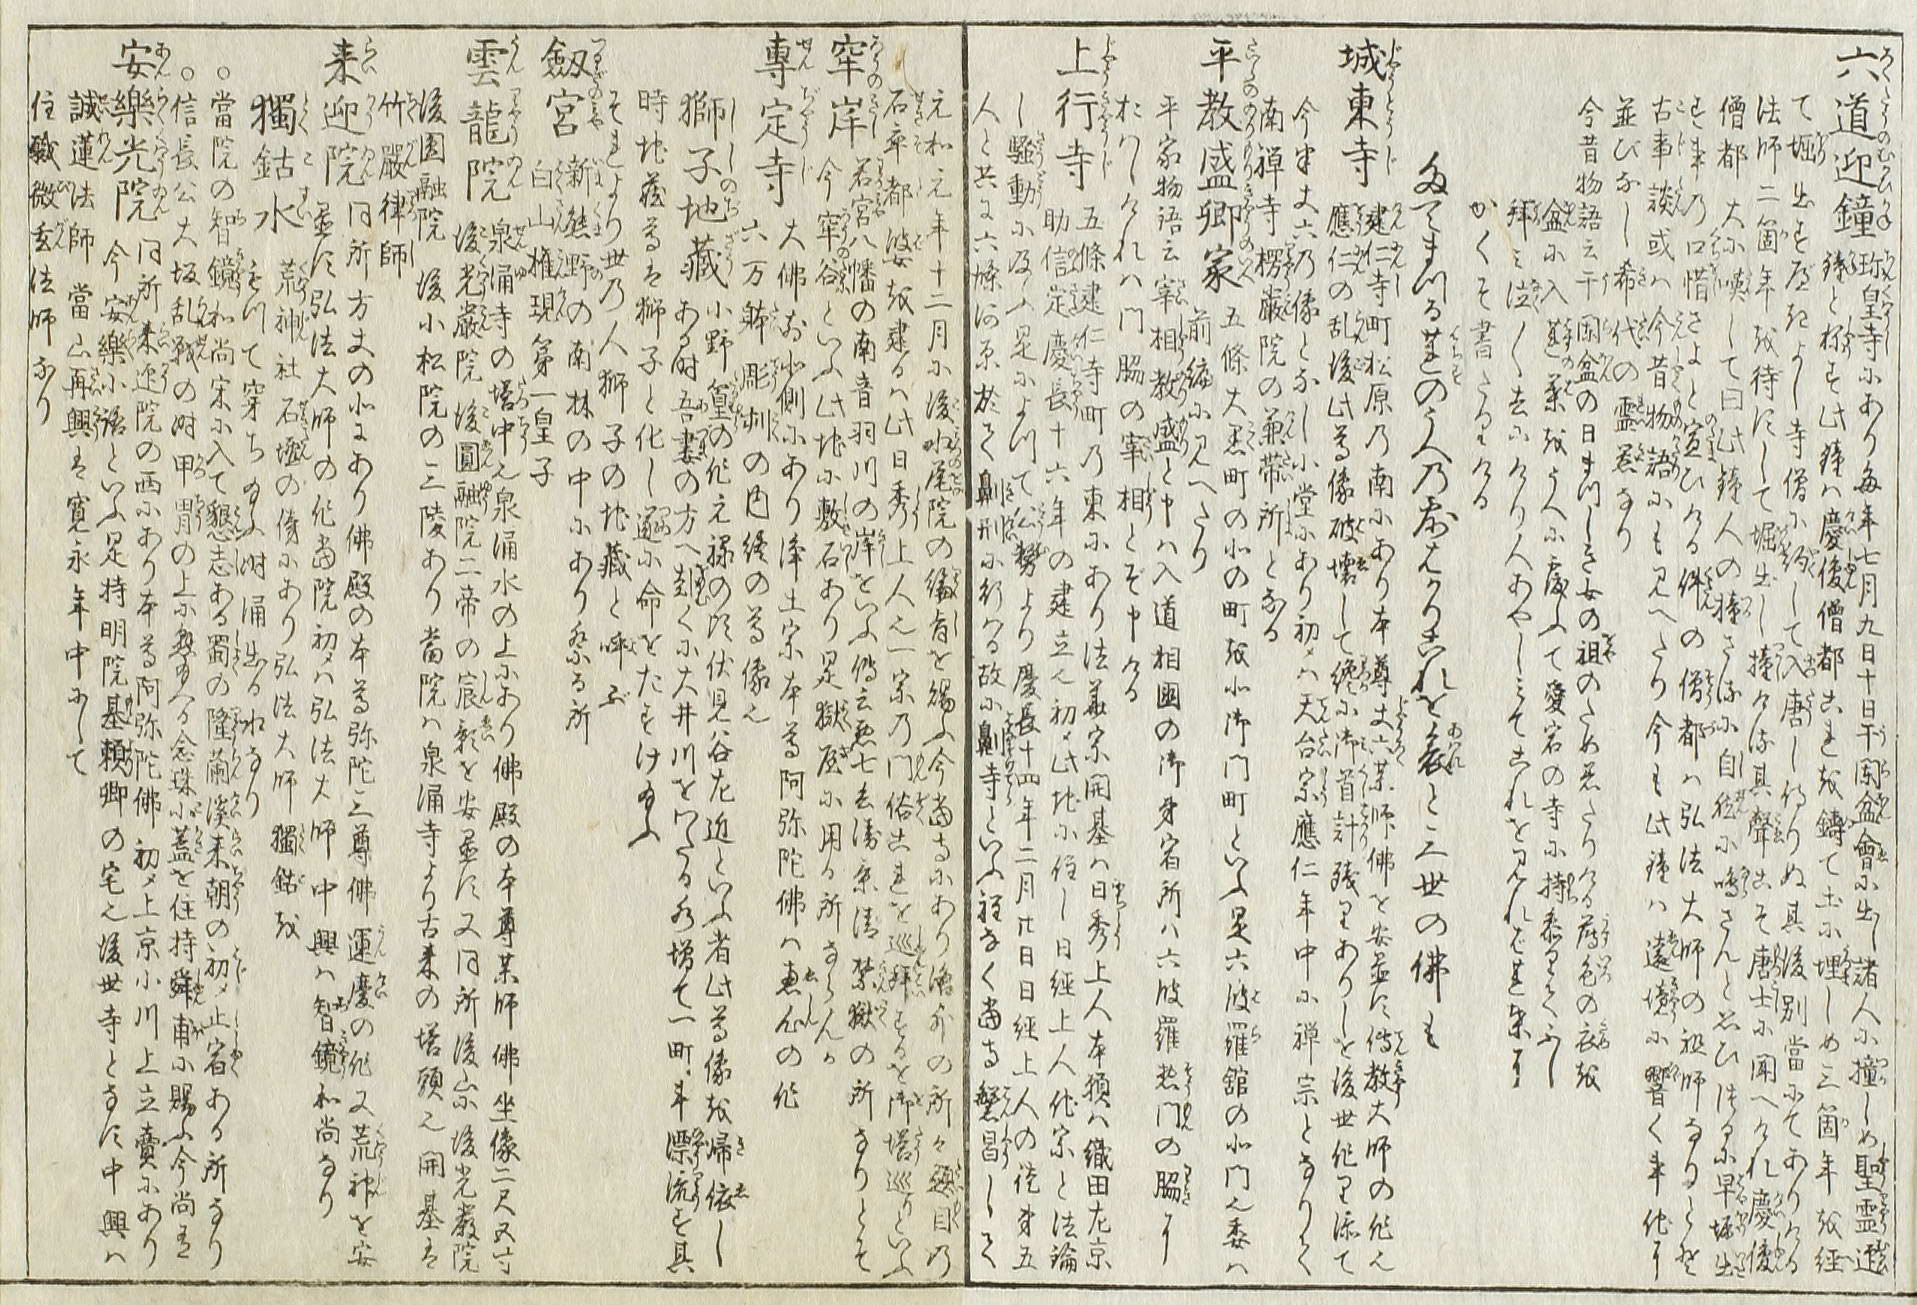 六道迎鐘 珎皇寺にあり毎年七月九日十日于闌盆會に出し諸人に撞しめ聖霊迎
鐘と称す此鐘ハ慶俊僧都これを鋳て土に埋しめ三箇年を経
て堀出すべきよし寺僧に約して入唐し侍りぬ其後別當にてありける
法師二箇年を待ずして堀出し撞ける其聲こそ唐土に聞へけれ慶俊
僧都大に嘆して曰此鐘人の撞さるに自然に鳴さんと思ひ
古事談或ハ今昔物語にも見へたり今も此鐘ハ遠境に響く
並びなし希代の霊器なり
今昔物語云于闌盆の日
盆に入蓮葉をうへに覆ふて愛宕の寺に持参りてふし
拝ミ泣〳〵去にけり人あやしミてこれを見れバ
かくぞ書たりける
たてまつる蓮のうへの露ばかりこれを哀と三世の佛も
城東寺 建仁寺町松原の南にあり本尊丈六薬師佛を安置す傳教大師の作也
應仁の乱後此尊像破壊して纔に御首計残りありしを後世作り添て
今半丈六の像となし小堂にあり初メハ天台宗應仁年中に禅宗となりて
南禅寺楞厳院の兼帯所となる
平教盛卿家 五條大黒町の北の町を北御門町といふ是六波羅舘の北門也委ハ
前編に見へたり
平家物語云宰相教盛と申ハ入道相國の御弟宿所ハ六波羅惣門の脇に
おハしけれハ門脇の宰相とぞ申ける
上行寺 五條建仁寺町の東にあり法華宗開基ハ日秀上人本願ハ織田左京
助信定慶長十六年の建立也初メ此地に住し日経上人他宗と法論
し騒動に及ふ是によつて公務より慶長十四年二月廿日日経上人の徒弟五
人と共に六條河原於て鼻刑に行ハる故に鼻寺といふ程なく當寺繁昌して
元和元年十二月に後水尾院の綸旨を賜ふ今當寺にあり
石率都婆を建るハ此日秀上人也一宗の門俗これを巡拝するを御塔巡りといふ
牢岸 若宮八幡の南音羽川の岸をいふ傳云悪七兵衛景清禁獄の所なりとぞ
今牢谷といふ此地に敷石あり是獄屋に用る所ならんか
專定寺 大佛北側にあり浄土宗本尊阿弥陀佛ハ恵心の作
六万躰彫刻の内終の尊像也
獅子地蔵 小野篁の作元禄の頃伏見谷左近といふ者此尊像を帰依し
ある時吾妻の方へ赴くに大井川をわたる水増て一町半漂流す其
時地蔵尊ハ獅子と化し遁に命をたすけ給ふ
それより世の人獅子の地藏と呼ぶ
劔宮 新熊野の南林の中にあり祭る所
白山権現第一皇子
雲龍院 泉涌寺の塔中也泉涌水の上にあり佛殿の本尊薬師佛坐像二尺五寸
後光嚴院後圓融院二帝の宸影を安置す又同所後山に後光嚴院
後圓融院後小松院の三陵あり當院ハ泉涌寺より古来の塔頭也開基ハ
竹巖律師
来迎院 同所方丈の北にあり佛殿の本尊弥陀三尊佛運慶の作又荒神を安
置す弘法大師の作當院初メハ弘法大師中興ハ智鏡和尚なり
獨鈷水 荒神社石壇の傍にあり弘法大師獨鈷を
もつて穿ち給ふ時涌出る水なり
○當院の智鏡和尚宋に入て懇志ある蜀の隆蘭溪来朝の初メ止宿ある所なり
○信長公大坂乱戦の時甲冑の上に念珠小蓋を住持舜甫に賜ふ今尚
安樂光院 同所来迎院の西にあり本尊阿弥陀佛初メ上京小川上立賣にあり
今安樂小路といふ是持明院基頼卿の宅也後世寺となす中興ハ
誠蓮法師當山再興ハ寛永年中にして
住職微玄法師なり